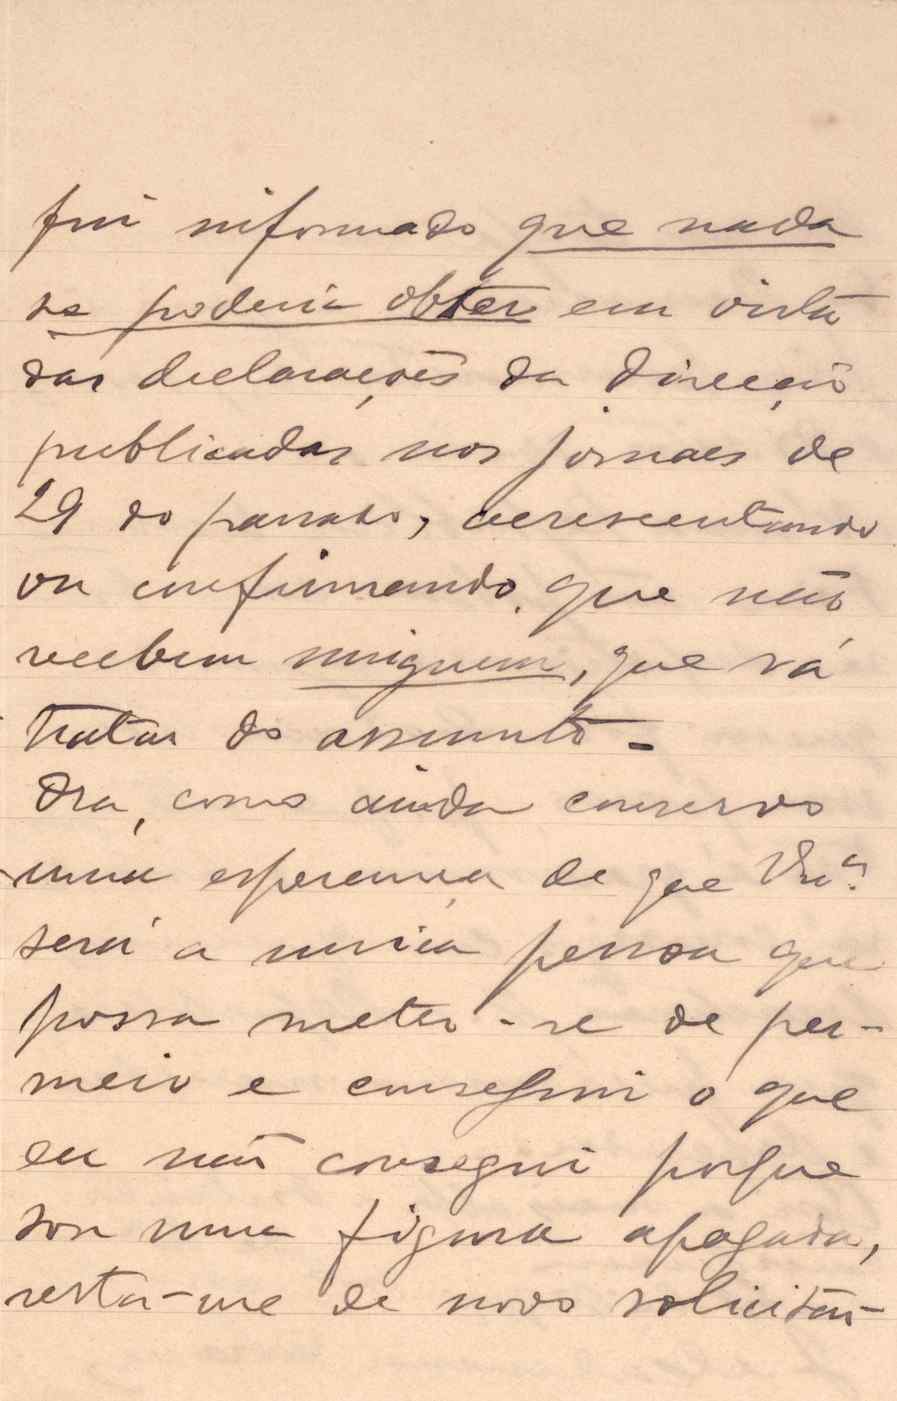 fui informado que nada
se poderia obter em vista
das declarações da Direcção
publicadas nos jornaes de
29 do passado, acrescentando
ou confirmando, que não
recebem ninguem, que vá
tratar do assunto -
Ora, como ainda conservo
uma esperança de que V.Exª.
será a unica pessoa que
possa meter-se de per-
meio e conseguir o que
eu não consegui porque
sou uma figura apagada,
resta-me de novo solicitar-